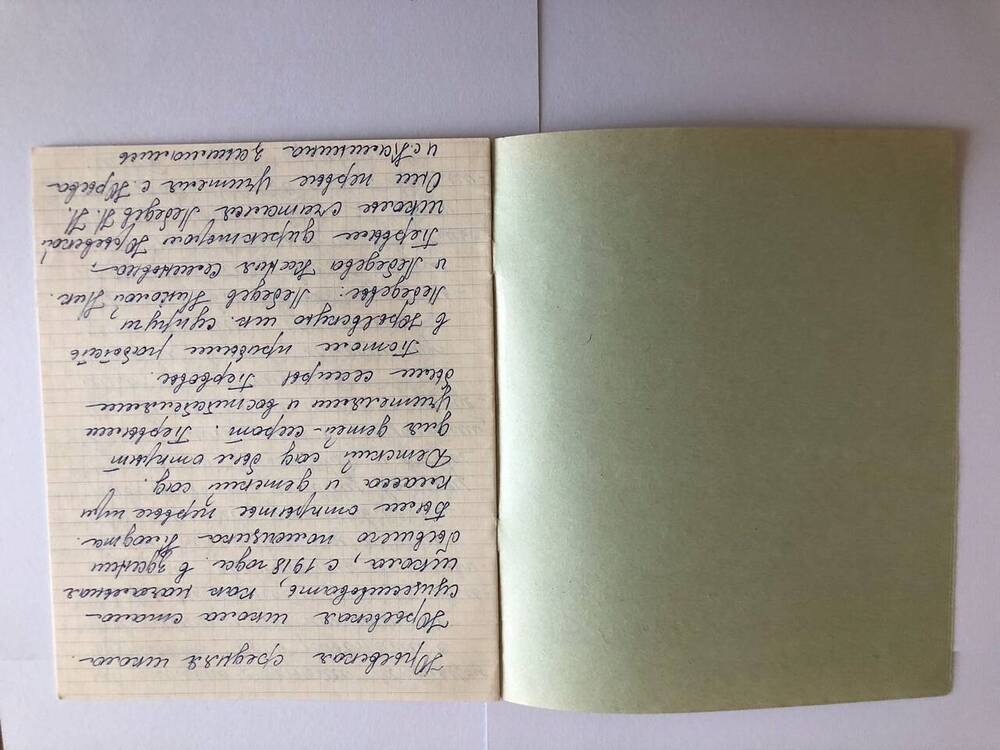 Юрьевская средняя школа.
Юрьевская школа стала
существовать, как начальная
школа, с 1918 года. в здании
бывшего помещика
Были открыты первые три
класса и детский сад.
Детский сад был открыт
для детей-сирот. Первыми
учителями и воспитателями
были сестры Перовы.
Потом прибыли работать
в Юрьевскую шк. супруги
Лебедевы: Лебедев Николай Ник.
и Лебедева Ксения Семеновна,
Первым директором Юрьевской
школы считался Лебедев Н. Н.
Они первые учителя с. Юрьева
и с. Калинкина занимались